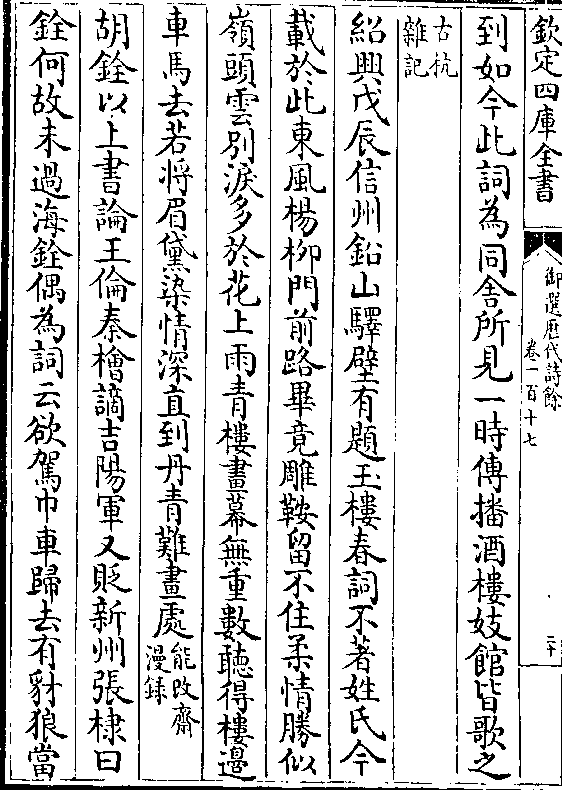 欽定四庫全書
御選歷代詩餘
卷一百十七
二十
到如今此詞為同舍所見一時傳播酒樓妓館皆歌之
古杭
雜記
紹興戊辰信州鉛山驛壁有題玉樓春詞不著姓氏今
載於此東風楊柳門前路畢竟雕鞍留不住柔情勝似
嶺頭雲別淚多於花上雨青樓畫幕無重數聽得樓邉
車馬去若將眉黛染情深直到丹青難畫處
能改齋
漫録
胡銓以上書論王倫秦檜謫吉陽軍又貶新州張棣曰
銓何故未過海銓偶為詞云欲駕巾車歸去有豺狼當